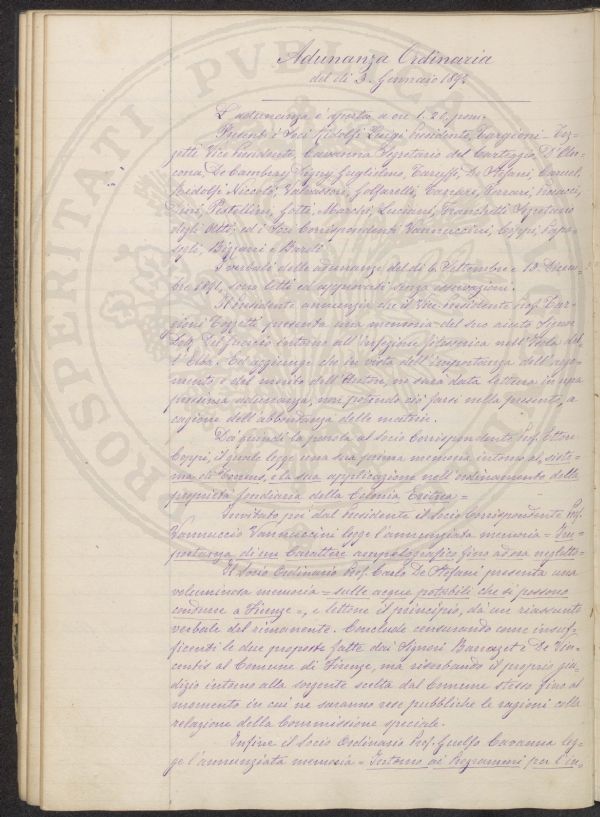 Adunanza Ordinaria
del dì 3. Gennaio 1892
L'adunanza è aperta a ore 1.20 pom.
Presenti i Soci Ridolfi Luigi Presidente, Targioni Toz-
zetti Vice Presidente, Cavanna Segretario del Carteggio, D'An-
cona, De Cambray Digny Guglielmo, Caruel,
Ridolfi Niccolò, Valvassori, Golfarelli, Ferrari,
Pestellini, Gotti, Marchi, Luciani, Franchetti Segretario
degli Atti ed i Soci Corrispondenti Vannuccini, Coppi,
Bizzoni e Bardi.
I verbali delle adunanze del dì 6 Settembre e 13 Dicem-
bre 1891, sono letti ed approvati senza osservazioni.
Il Presidente annunzia che il Vice Presidente Prof. Tar-
gioni Tozzetti presenta una memoria del suo aiuto Signor
Dott. Del Guercio intorno all'infezione filosserica nell'Isola del-
l'Elba. Ed aggiunge che in vista dell'importanza dell'argo-
mento e del merito dell'Autore, ne sarà data lettura in una
prossima adunanza, non potendo ciò farsi nella presente, a
cagione dell'abbondanza delle materie.
Dà quindi la parola al Socio Corrispondente Prof. Ettore
Coppi, il quale legge una sua prima memoria intorno al siste-
ma di Torrens, e la sua applicazione nell'ordinamento della
proprietà fondiaria della Colonia Eritrea =
Invitato poi dal Presidente il Socio Corrispondente Prof.
Vannuccio Vannuccini legge l'annunziata memoria = Im-
portanza di un Carattere ampelografico fino ad ora negletto =
Il Socio Ordinario Prof. Carlo De Stefani presenta una
voluminosa memoria = sulle acque potabili che si possono
condurre a Firenze =, e lettone il principio, dà un riassunto
verbale del rimanente. Conclude censurando come insuf-
ficenti le due proposte fatte dai Signori Banazet e De Vin-
centis al Comune di Firenze, ma riserbando il proprio giu-
dizio intorno alla sorgente scelta dal Comune stesso fino al
momento in cui ne saranno rese pubbliche le ragioni colla
relazione della Commissione speciale.
Infine il Socio Ordinario Prof. Guelfo Cavanna leg-
ge l'annunziata memoria = Intorno ai Programmi per l'in-
PROSPERITATI PVBLICAE